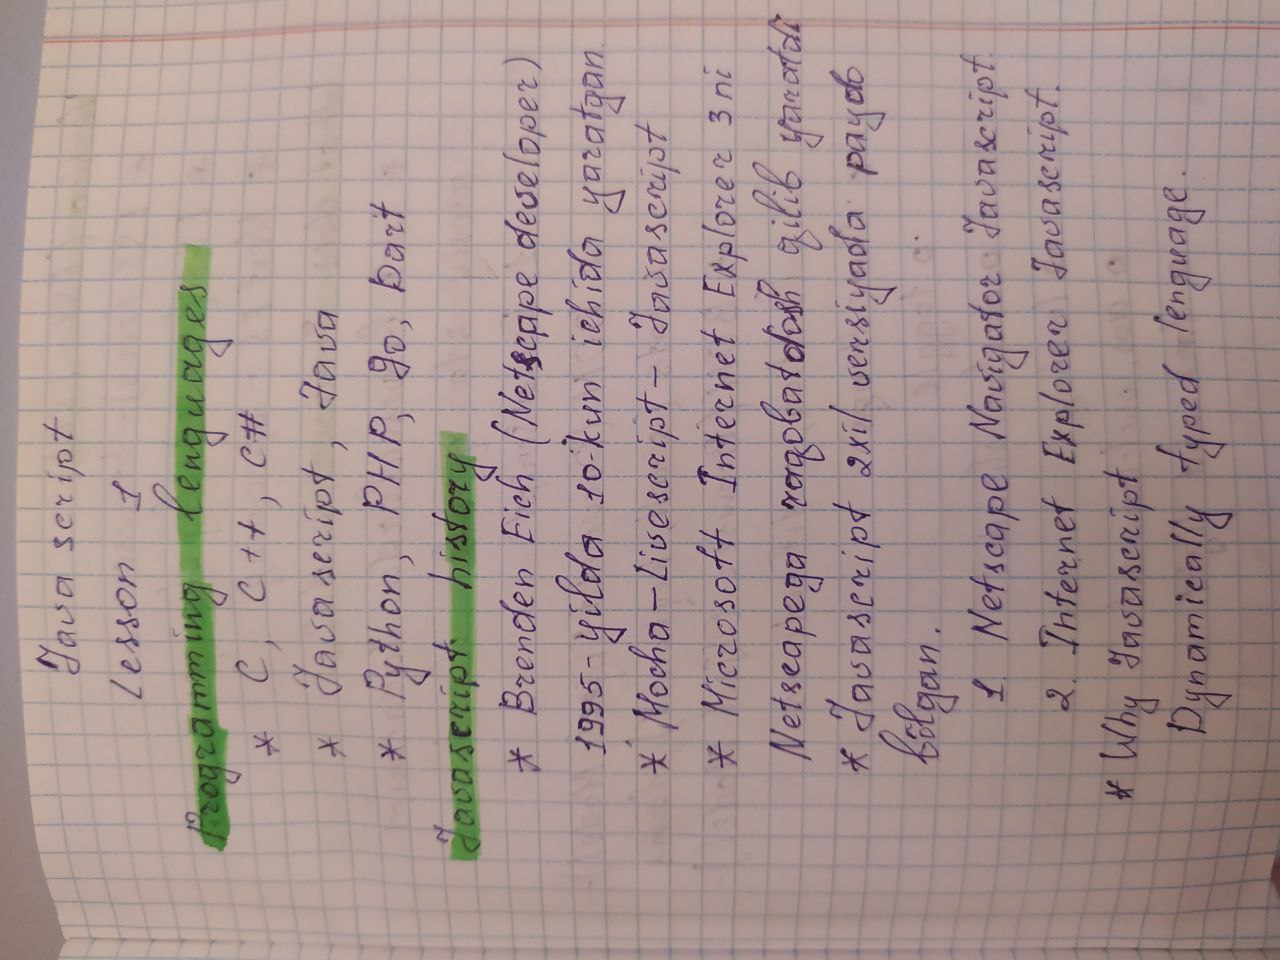 Javascript
Lesson 1
Programming lenguages
* C, C++, C#
* Javascript, Java
* Python, PHP, go, Dart
Javascript history
* Brenden Eich (Netscape developer)
1995-yilda 10-kun ichida yaratgan
* Mocha - Livescript - Javascript
* Microsoft Internet Explorer 3 ni
Netscapega raqobatdosh qilib yaratdi
* Javascript 2 xil versiyada paydo
bo'lgan.
1. Netscape Navigator Javascript
2. Internet Explorer Javascript.
* Why Javascript
Dynamically typed lenguage.